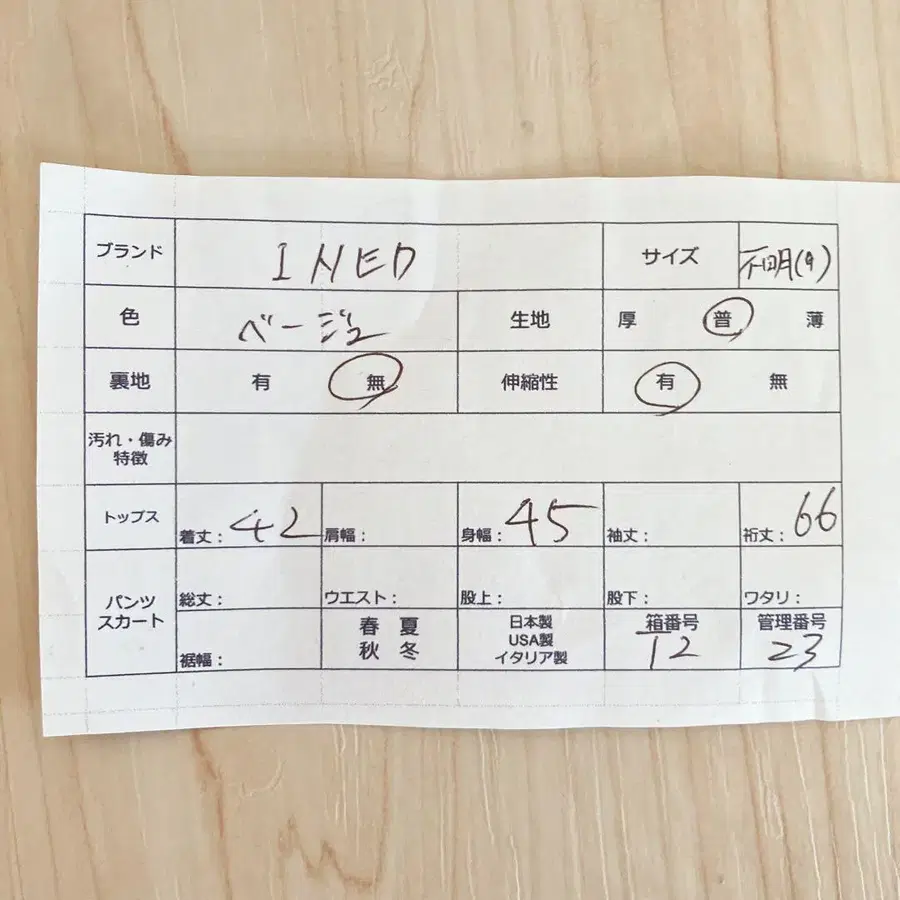 ブランド INED サイズ 不明(9)
色 ベージュ 生地 厚 普 薄
裏地 有 無 伸縮性 有 無
汚れ・傷み
特徴
トップス 着丈：42 肩幅： 身幅：45 袖丈： 裄丈：66
パンツ
スカート
総丈： ウエスト： 股上： 股下： ワタリ：
裾幅：
春 夏
秋 冬
日本製
USA製
イタリア製
箱番号
12
管理番号
23